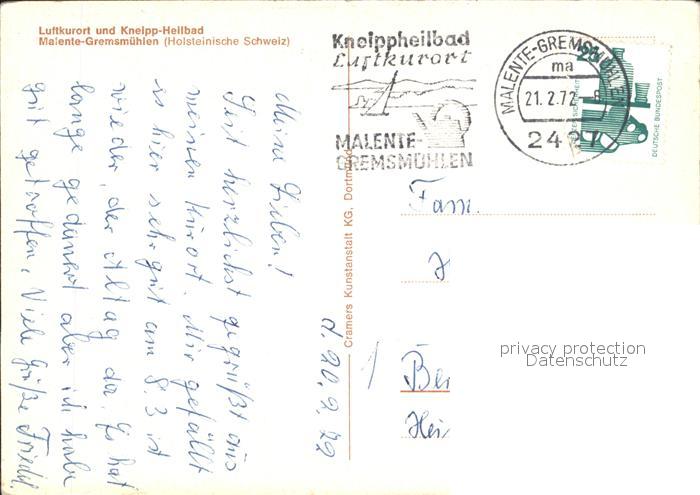 Luftkurort und Kneipp-Heilbad
Malente-Gremsmühlen (Holsteinische Schweiz)
Kneippheilbad
Luftkurort
MALENTE-
GREMSMÜHLEN
MALENTE-GREMSMÜHLEN
ma
21.2.72
2427
DEUTSCHE BUNDESPOST
Cramers Kunstanstalt KG, Dortmund
d. 20.2.72
Meine Lieben!
Seit herzlichst gegrüßt aus
meinen Kurort. Mir gefällt
es hier sehr gut am 8.3 ist
wieder der Altag da. Es hat
lange gedauert aber ich habe
gut getroffen. Viele Grüße Friedel
Fam.
Bei
Hei
privacy protection
Datenschutz